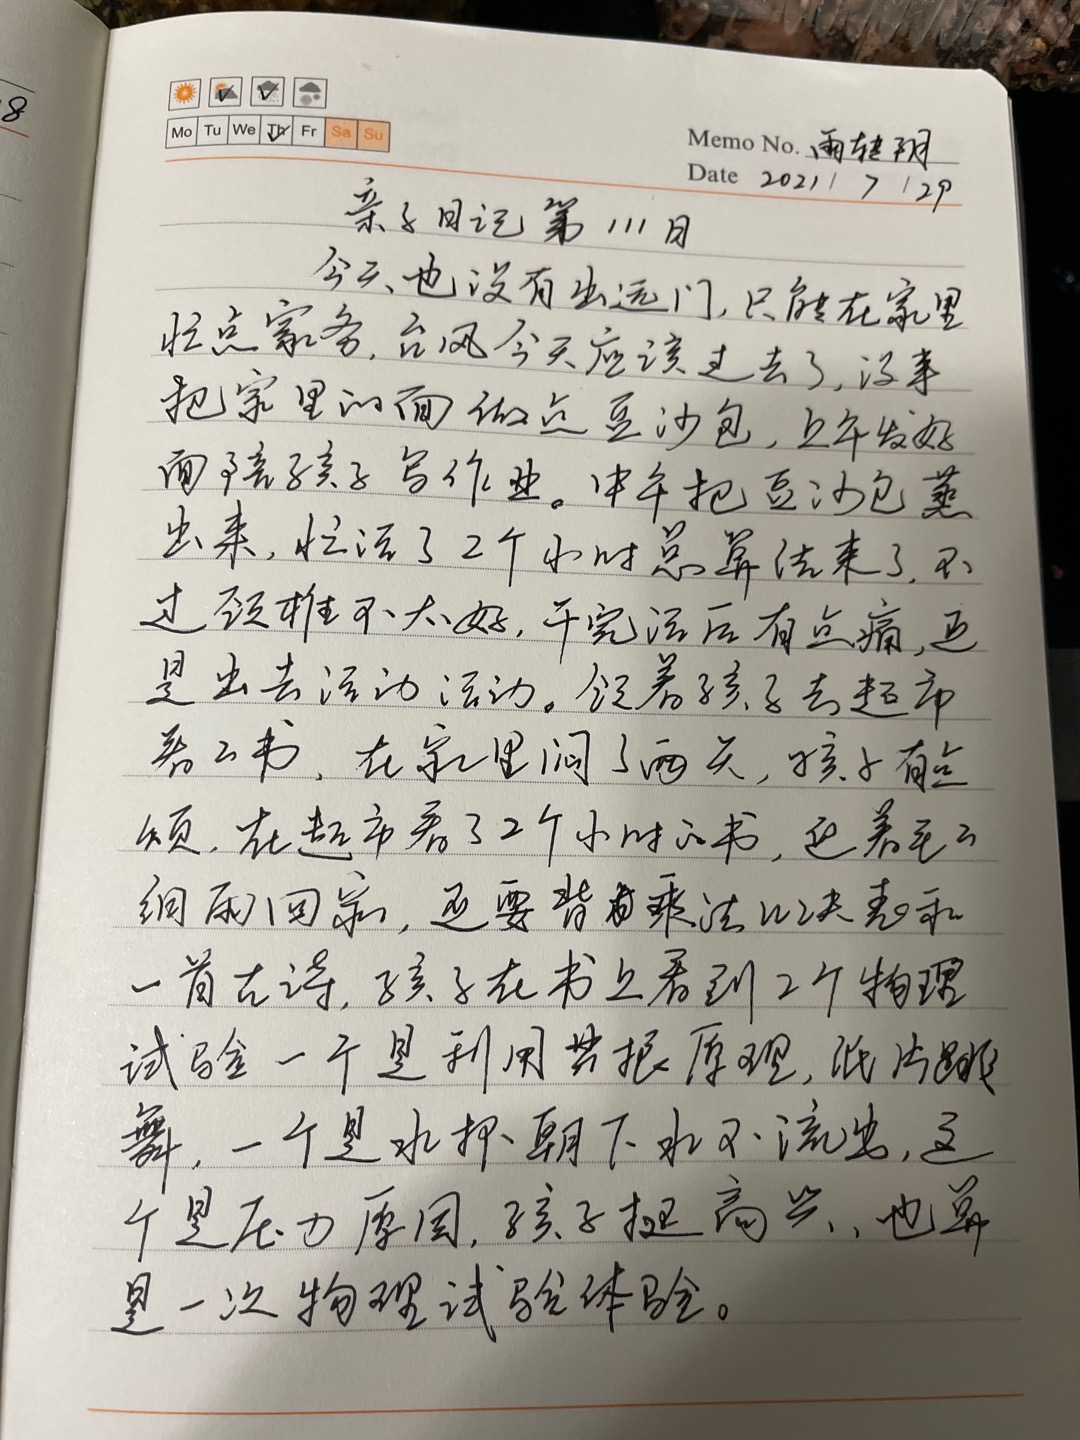 8
Mo Tu We Th Fr Sa Su
Memo No. 雨转阴
Date 2021/7/29
亲子日记第111日
今天也没有出远门,只能在家里
忙点家务,台风今天应该过去了,没事
把家里的面做点豆沙包,上午发好
面陪孩子写作业。中午把豆沙包蒸
出来,忙活了2个小时总算活来了,不
过颈椎不太好,干完活后有点痛,还
是出去活动活动。领着孩子去超市
看看书,在家里闷了两天,孩子有点
烦,在超市看了2个小时的书,迎着毛毛
细雨回家,还要背着乘法口诀表和
一首古诗,孩子在书上看到2个物理
试验一个是利用共振原理,纸片跳
舞,一个是水杯朝下水不流出,这
个是压力原因,孩子挺高兴,也算
是一次物理试验体验。